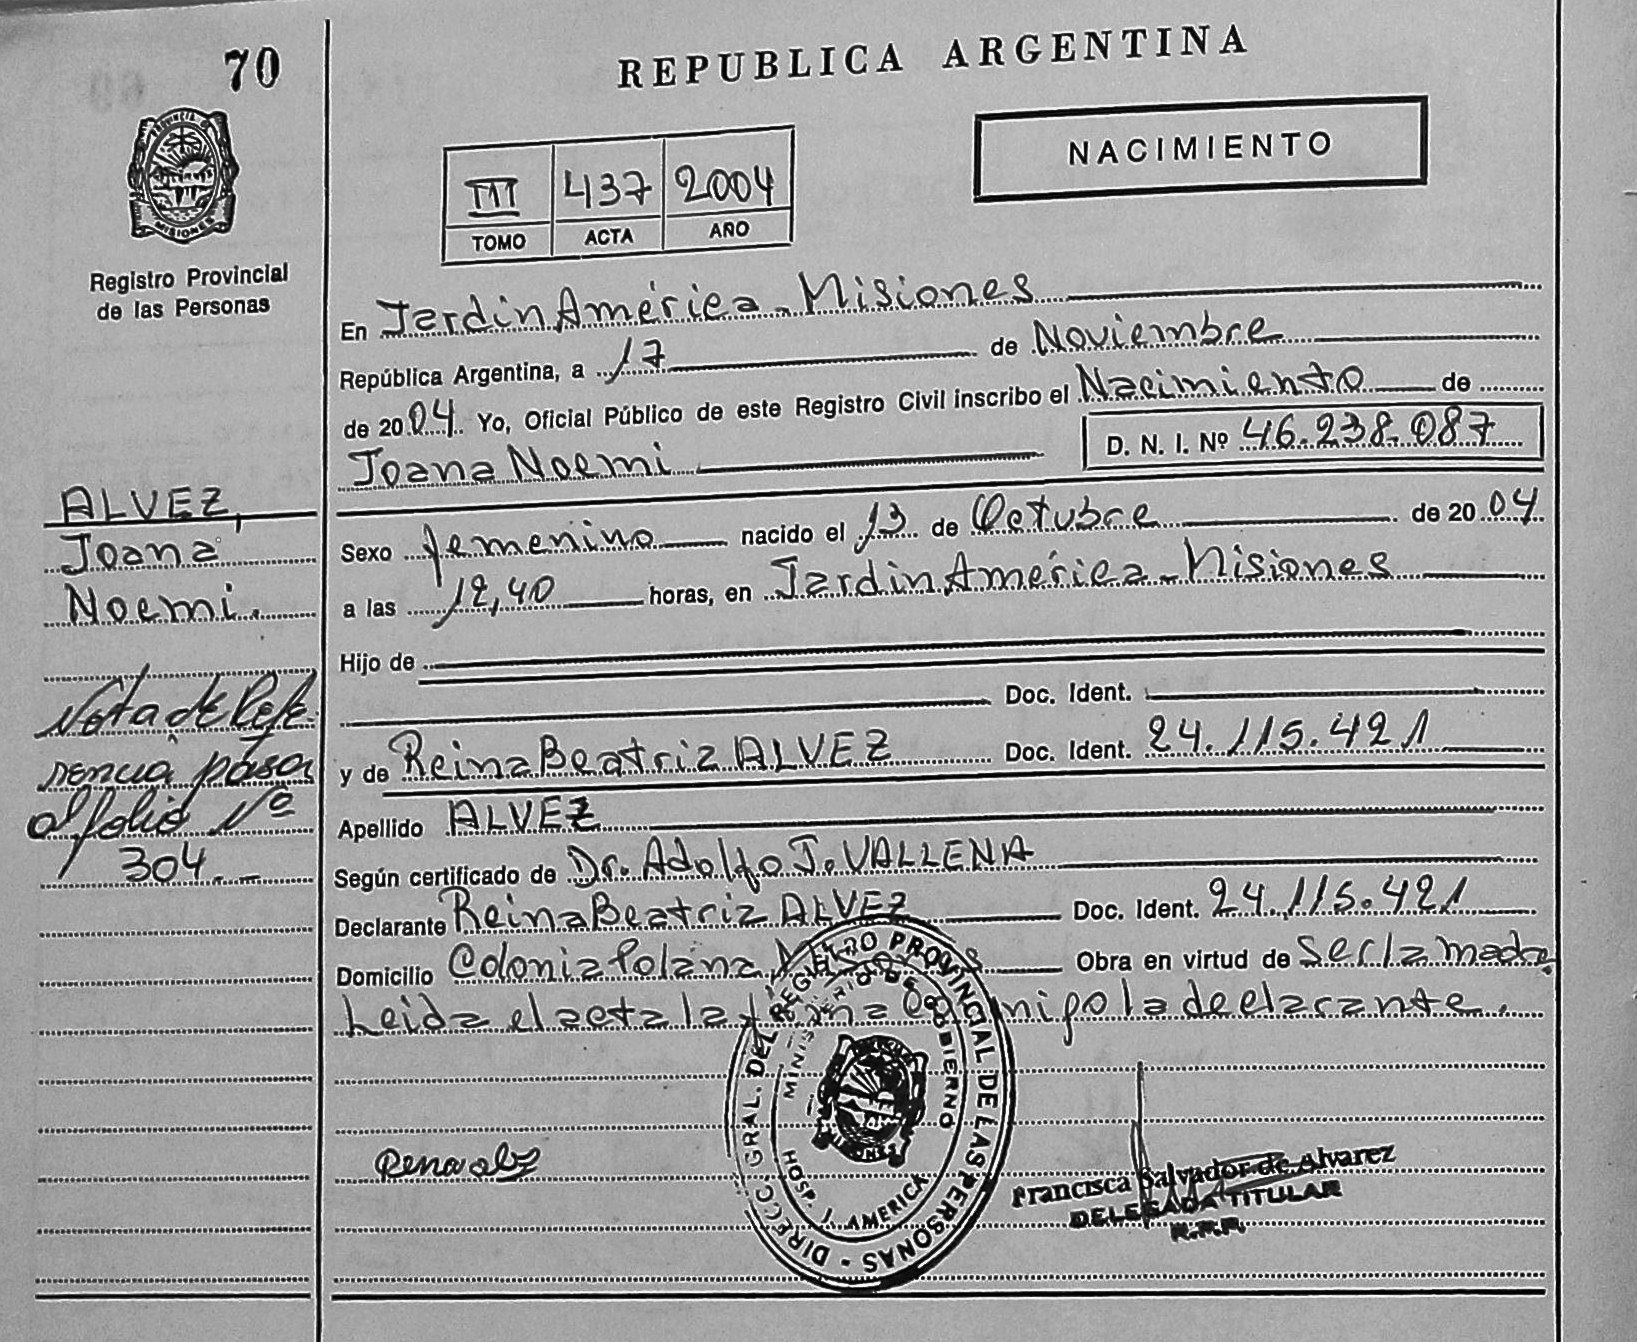 70
REPUBLICA ARGENTINA
PROVINCIA DE MISIONES
Registro Provincial
de las Personas
NACIMIENTO
III 437 2004
TOMO ACTA AÑO
En Jardin América - Misiones
República Argentina, a 17 de Noviembre
de 2004 Yo, Oficial Público de este Registro Civil inscribo el Nacimiento de
Joana Noemi D. N. I. Nº 46.238.087
ALVEZ,
Joana
Noemi.
Sexo femenino nacido el 13 de Octubre de 2004
a las 12,40 horas, en Jardin América - Misiones
Hijo de
Doc. Ident.
y de Reina Beatriz ALVEZ Doc. Ident. 24.115.421
Nota de Refe-
rencia pasa
al folio Nº
304.-
Apellido ALVEZ
Según certificado de Dr. Adolfo J. VALLENA
Declarante Reina Beatriz ALVEZ Doc. Ident. 24.115.421
Domicilio Colonia Polana Obra en virtud de Ser la madre
Leida el acta la firma Conmigo la declarante.
DIRECC. GRAL. DEL REGISTRO PROVINCIAL DE LAS PERSONAS
MINISTERIO DE GOBIERNO
HOSP. J. AMERICA
MISIONES
Francisca Salvador de Alvarez
DELEGADA TITULAR
R.P.P.